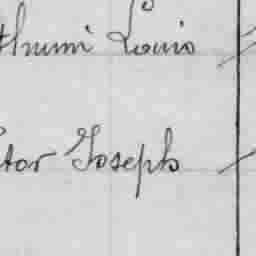 thumi Louis
tor Joseph